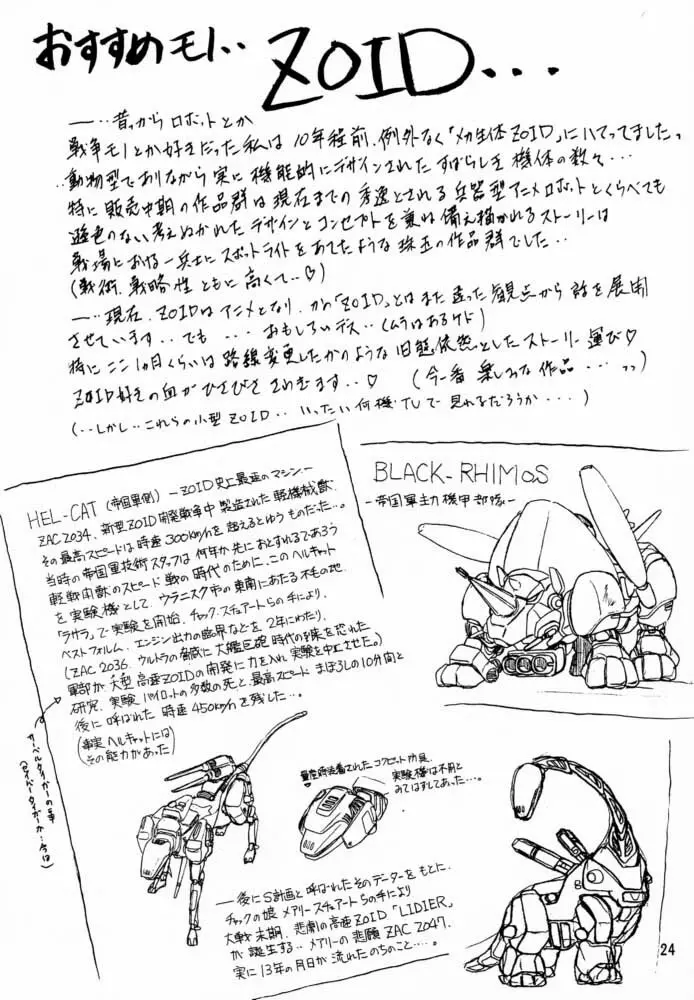 おすすめモノ‥
ZOID...
―‥昔っから ロボットとか
戦争モノとか好きだった私は 10年程前、例外なく「メカ生体ZOID」にハマってましたっ
‥動物型でありながら実に 機能的にデザインされた すばらしき 機体の数々…
特に 販売中期の作品群は 現在までの秀逸とされる 兵器型アニメロボットとくらべても
遜色のない 考えぬかれた デザインと コンセプトを 兼ね備え描かれるストーリーは
戦場における 一兵士に スポットライトを あてたような 珠玉の作品群でした‥
(戦術、戦略性 ともに 高くて‥♡)
―‥現在、ZOIDは アニメとなり、かの「ZOID」とは また 違った 観点から 話を 展開
させています‥でも … おもしろいデス‥(ムラはあるケド)
特に ここ1ヵ月くらいは 路線変更したかのような 旧態依然としたストーリー運び♡
ZOID好きの血が ひさびさ さわぎます‥♡ (今一番 楽しみな 作品 … っっ)
(‥しかし‥これらの小型 ZOID‥ いったい何機 TVで 見れるだろうか‥‥)
HEL-CAT (帝国軍側) ―ZOID史上最速のマシン.―
ZAC 2034、新型ZOID開発戦争中 製造された 軽機械獣、
その最高スピードは 時速300km/hを 超えるとゆう ものだった…。
当時の帝国軍技術スタッフは 何年か先に おとずれるであろう
軽戦闘獣のスピード戦の時代のために、この ヘルキャット
を 実験機として、ウラニスク市の東南にあたる不毛の地、
「ラサラ」で 実験を開始、チャック・スチュアートらの手により、
ベストフォルム、エンジン出力の臨界などを、2年にわたり、
(ZAC 2036、ウルトラの脅威に大艦巨砲時代の到来を恐れた
軍部が、大型高速ZOIDの開発に力を入れ 実験を中止させた。)
研究、実験パイロットの多数の死と、最高スピード まぼろしの10分間と
後に 呼ばれた 時速 450km/h を 残した…。
(事実 ヘルキャットには
その能力があった)
サーベルタイガーの事
(セイバータイガーか…今は)
BLACK-RHIMOS
―帝国軍主力機甲部隊―
量産時装着された コクピット防具、
実験機は不用と
みてはずしてあった…。
―後にS計画と呼ばれた そのデーターを もとに、
チャックの娘 メアリー スチュアート らの手により
大戦末期、悲劇の高速ZOID「LIDIER」
が 誕生する‥ メアリーの悲願 ZAC 2047、
実に 13年の月日が 流れたのちのこと…。
24